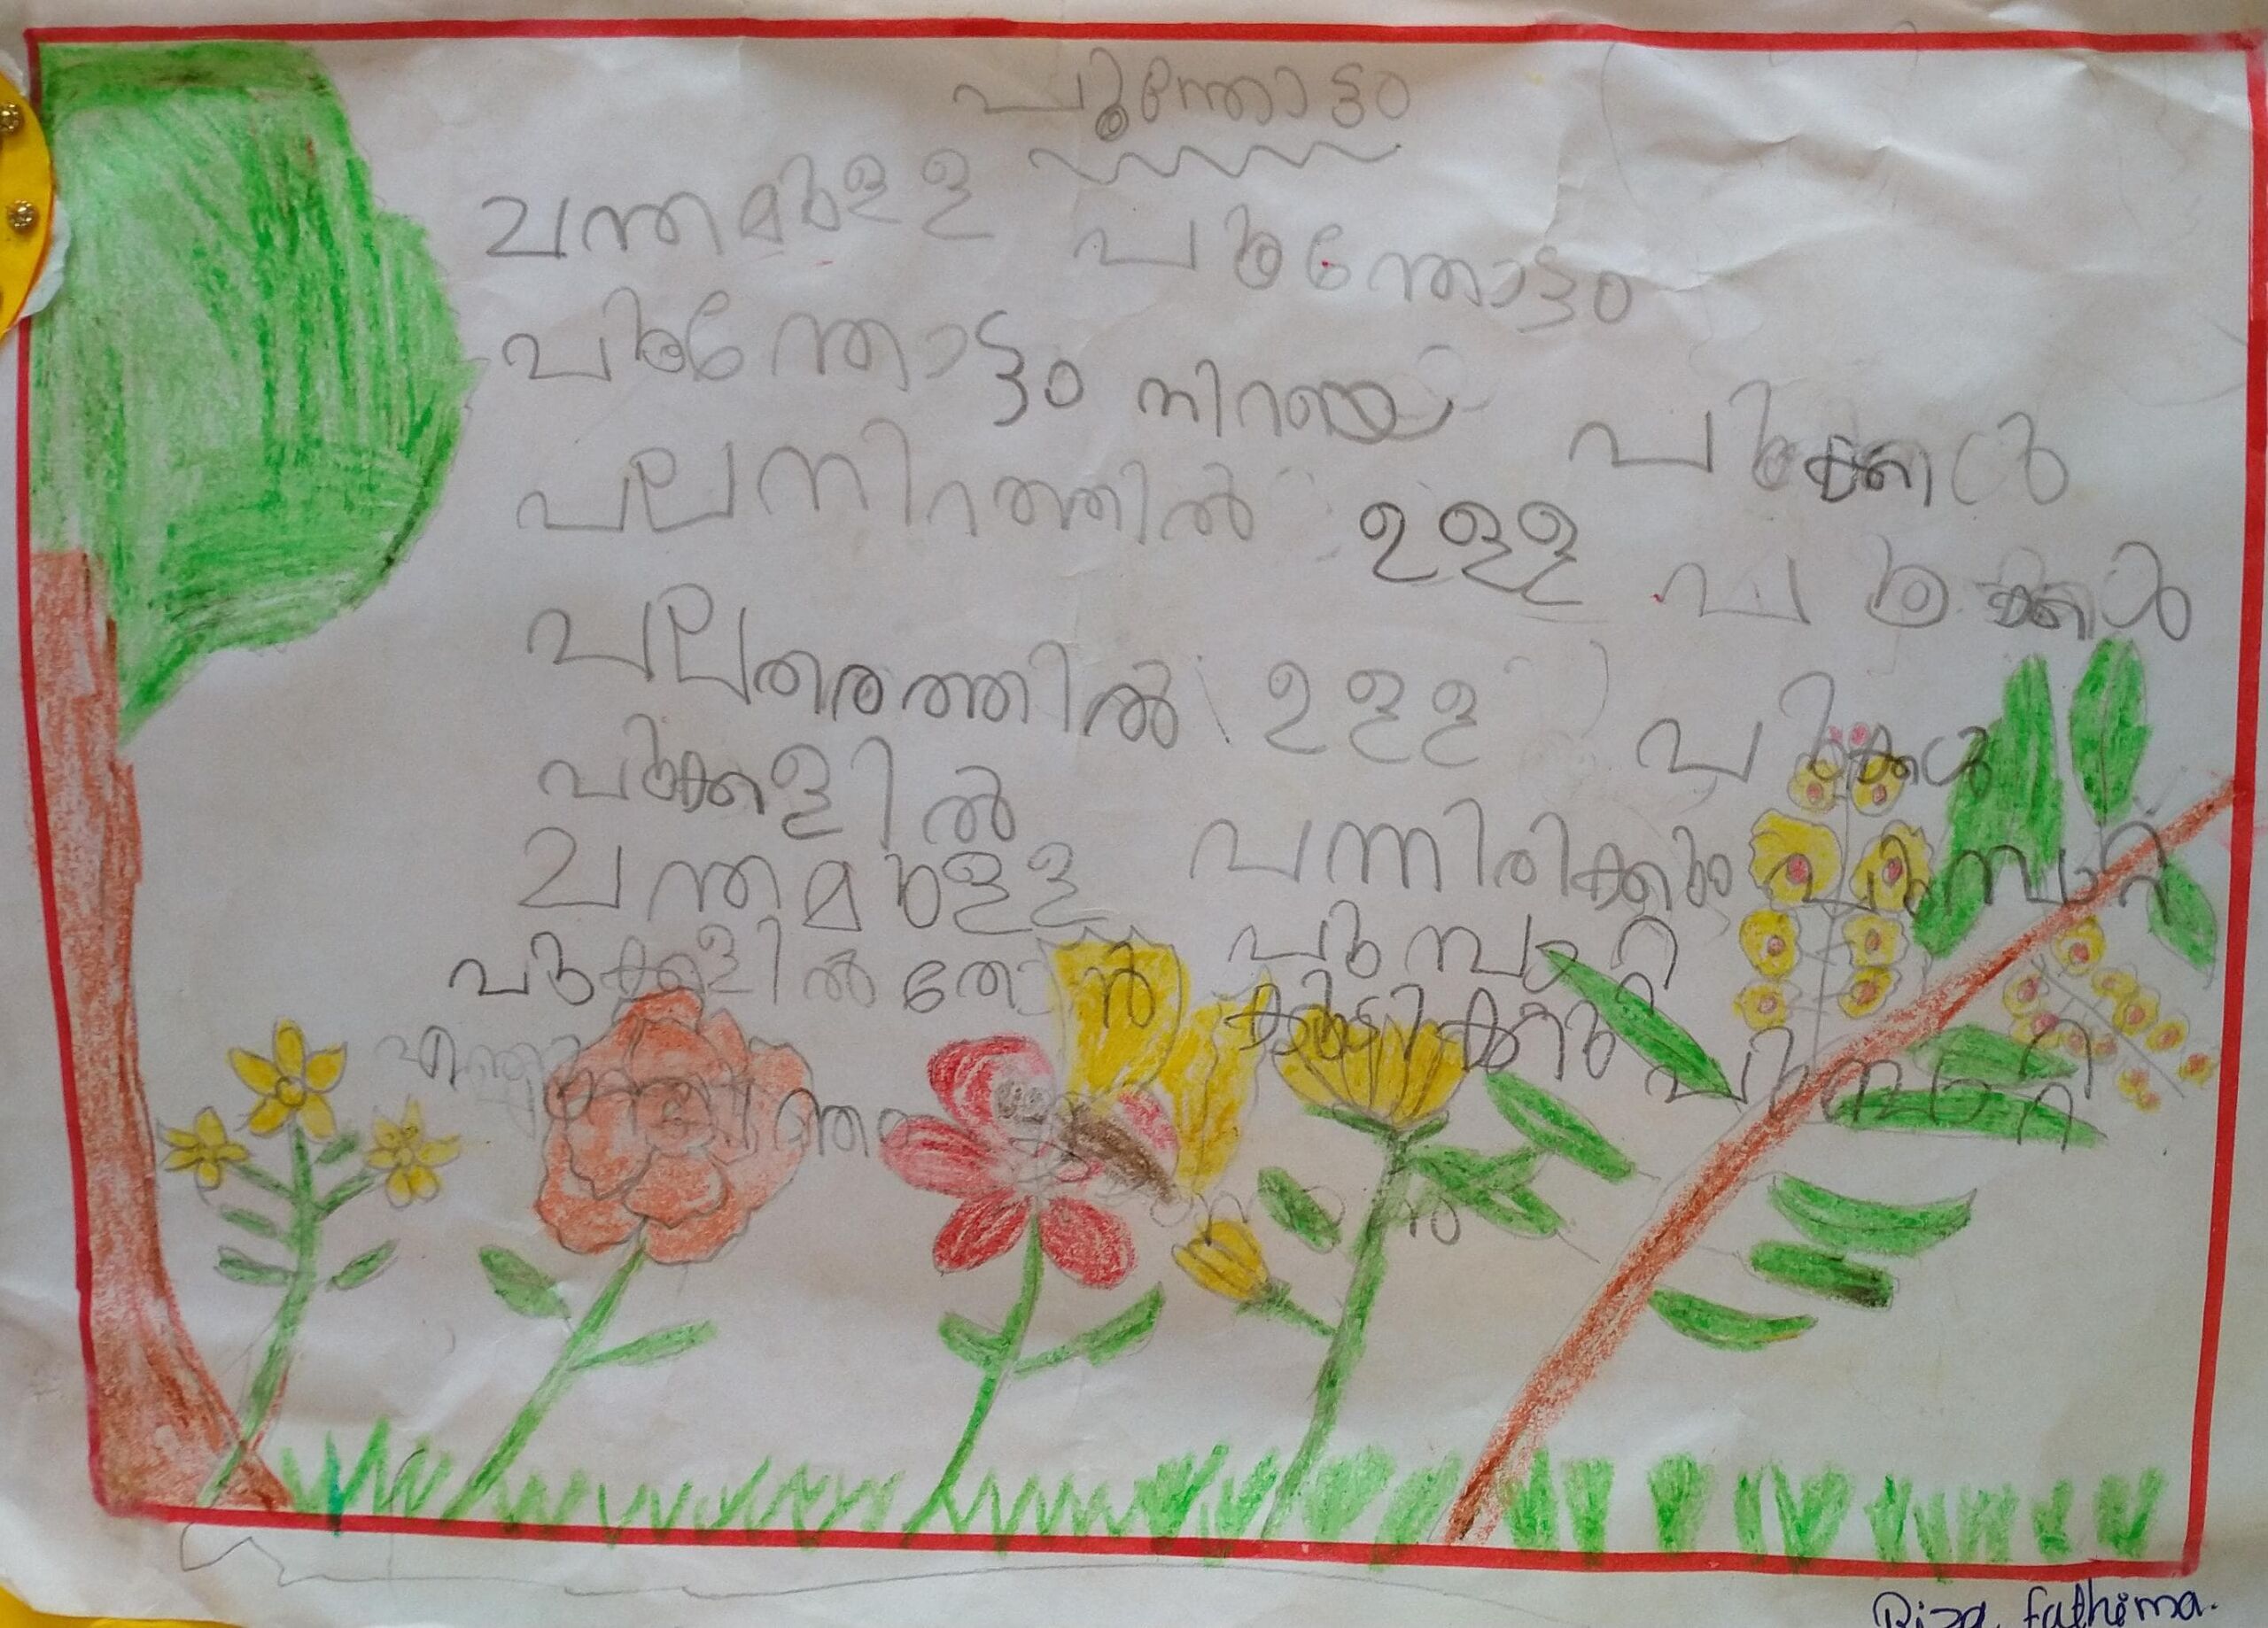 പൂന്തോട്ടം
ചന്തമുള്ള പൂന്തോട്ടം
പൂന്തോട്ടം നിറയെ പൂക്കൾ
പലനിറത്തിൽ ഉള്ള പൂക്കൾ
പലതരത്തിൽ ഉള്ള പൂക്കൾ
പൂക്കളിൽ
ചന്തമുള്ള പന്നിരിക്കും പൂമ്പാറ്റ
പൂക്കളിൽ തേൻ കുടിക്കും പൂമ്പാറ്റ
പൂമ്പാറ്റ
Riza fathima.